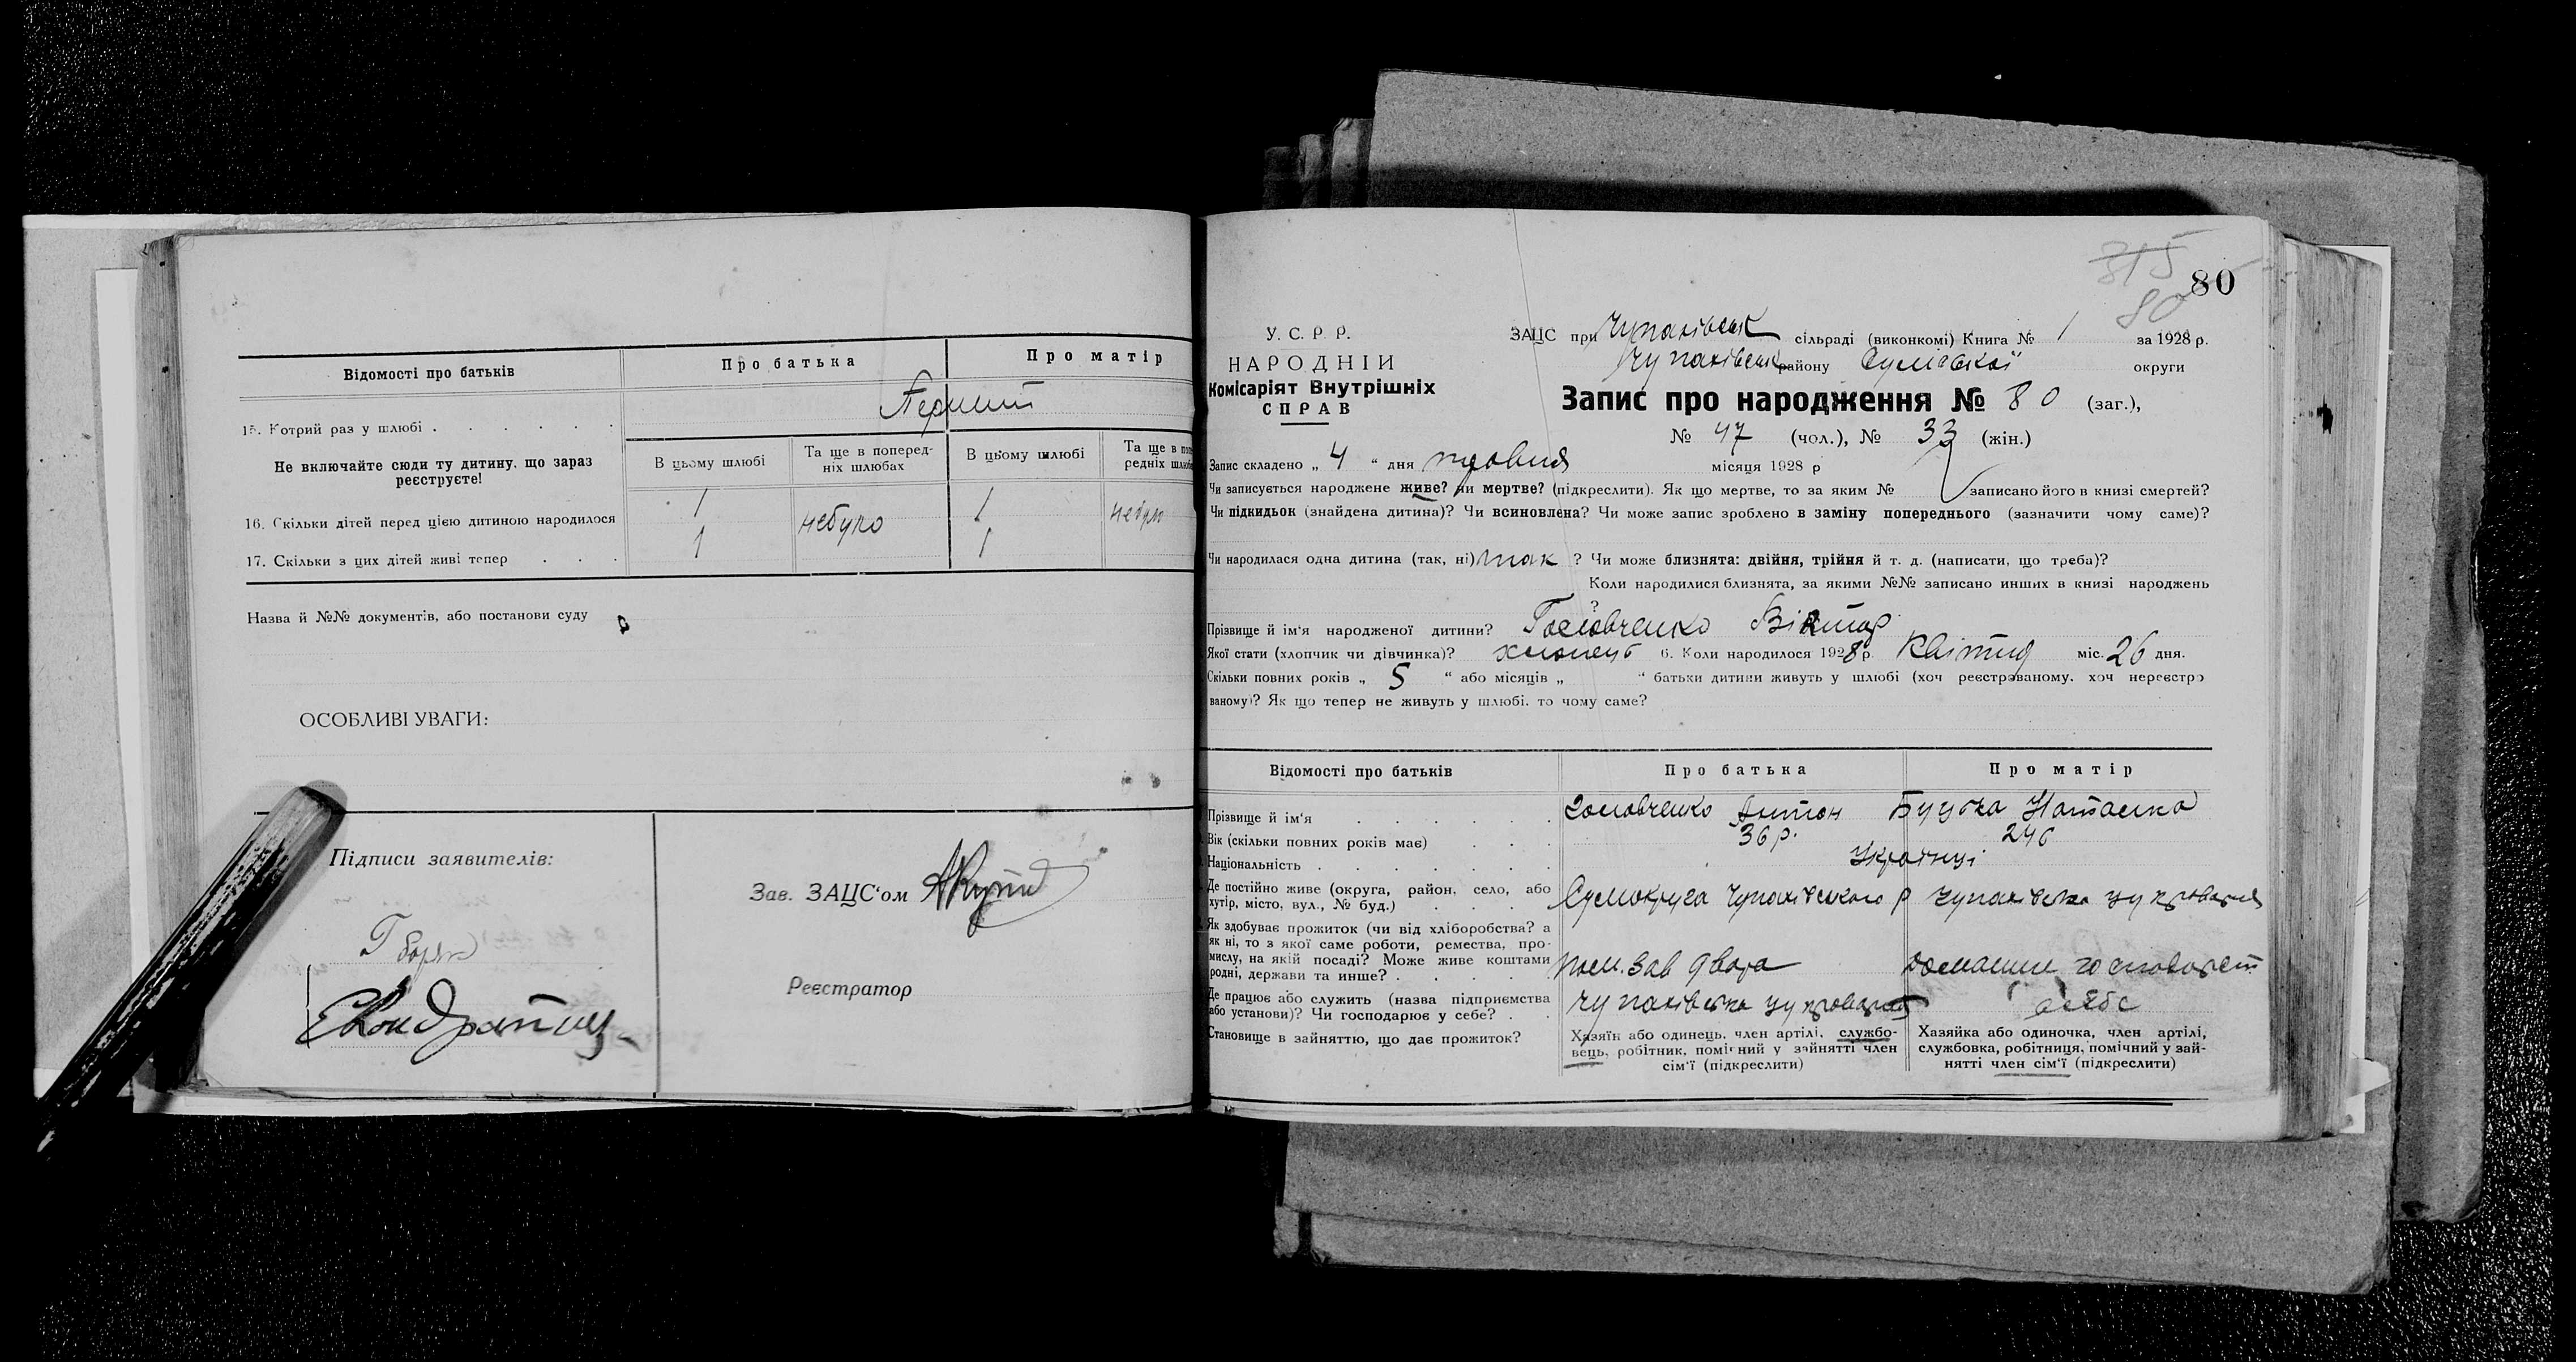 Відомості про батьків
Про батька
Про матір
15. Котрий раз у шлюбі . . . . . .
Перший
Не включайте сюди ту дитину, що зараз реєструєте!
В цьому шлюбі
Та ще в поперед-
ніх шлюбах
В цьому шлюбі
Та ще в по
редніх шлюб
16. Скільки дітей перед цією дитиною народилося
1 небуло 1 небуло
17. Скільки з цих дітей живі тепер . . .
1 1
Назва й №№ документів, або постанови суду
ОСОБЛИВІ УВАГИ:
Підписи заявителів:
Зав. ЗАЦС'ом
Реєстратор
315
80
80
У. С. Р. Р.
НАРОДНІЙ
Комісаріят Внутрішніх
СПРАВ
ЗАЦС при Чупахівськ сільраді (виконкомі) Книга № 1 за 1928 р.
Чупахівськ району Сумської округи
Запис про народження № 80 (заг.),
№ 47 (чол.), № 33 (жін.)
Запис складено „ 4 “ дня травня місяця 1928 р
Чи записується народжене живе? чи мертве? (підкреслити). Як що мертве, то за яким № записано його в книзі смертей?
Чи підкидьок (знайдена дитина)? Чи всиновлена? Чи може запис зроблено в заміну попереднього (зазначити чому саме)?
Чи народилася одна дитина (так, ні) так ? Чи може близнята: двійня, трійня й т. д. (написати, що треба)?
Коли народилися близнята, за якими №№ записано инших в книзі народжень
?
Прізвище й ім'я народженої дитини? Головченко Віктор
Якої стати (хлопчик чи дівчинка)? хлопець 6. Коли народилося 1928 р. Квітня міс. 26 дня.
Скільки повних років „ 5 “ або місяців „ “ батьки дитини живуть у шлюбі (хоч реєстрованому, хоч нереєстро
ваному)? Як що тепер не живуть у шлюбі, то чому саме?
Відомості про батьків
Про батька
Про матір
Прізвище й ім'я . . . . . .
Головченко Антон
Наталка
Вік (скільки повних років має) . . .
36 р.
Національність . . . . . . .
Українці
Де постійно живе (округа, район, село, або
хутір, місто, вул., № буд.) . . . .
Сумокруга Чупахівського р Чупахівка цукроварня
Як здобуває прожиток (чи від хліборобства? а
як ні, то з якої саме роботи, ремества, про-
мислу, на якій посаді? Може живе коштами
родні, держави та инше? . . . .
пом. зав двора
домашнє господарст
Де працює або служить (назва підприємства
або установи)? Чи господарює у себе? . .
Чупахівка цукроварня
Становище в зайняттю, що дає прожиток?
Хазяїн або одинець, член артілі, службо-
вець, робітник, помічний у зайнятті член
сім'ї (підкреслити)
Хазяйка або одиночка, член артілі,
службовка, робітниця, помічний у зай-
нятті член сім'ї (підкреслити)